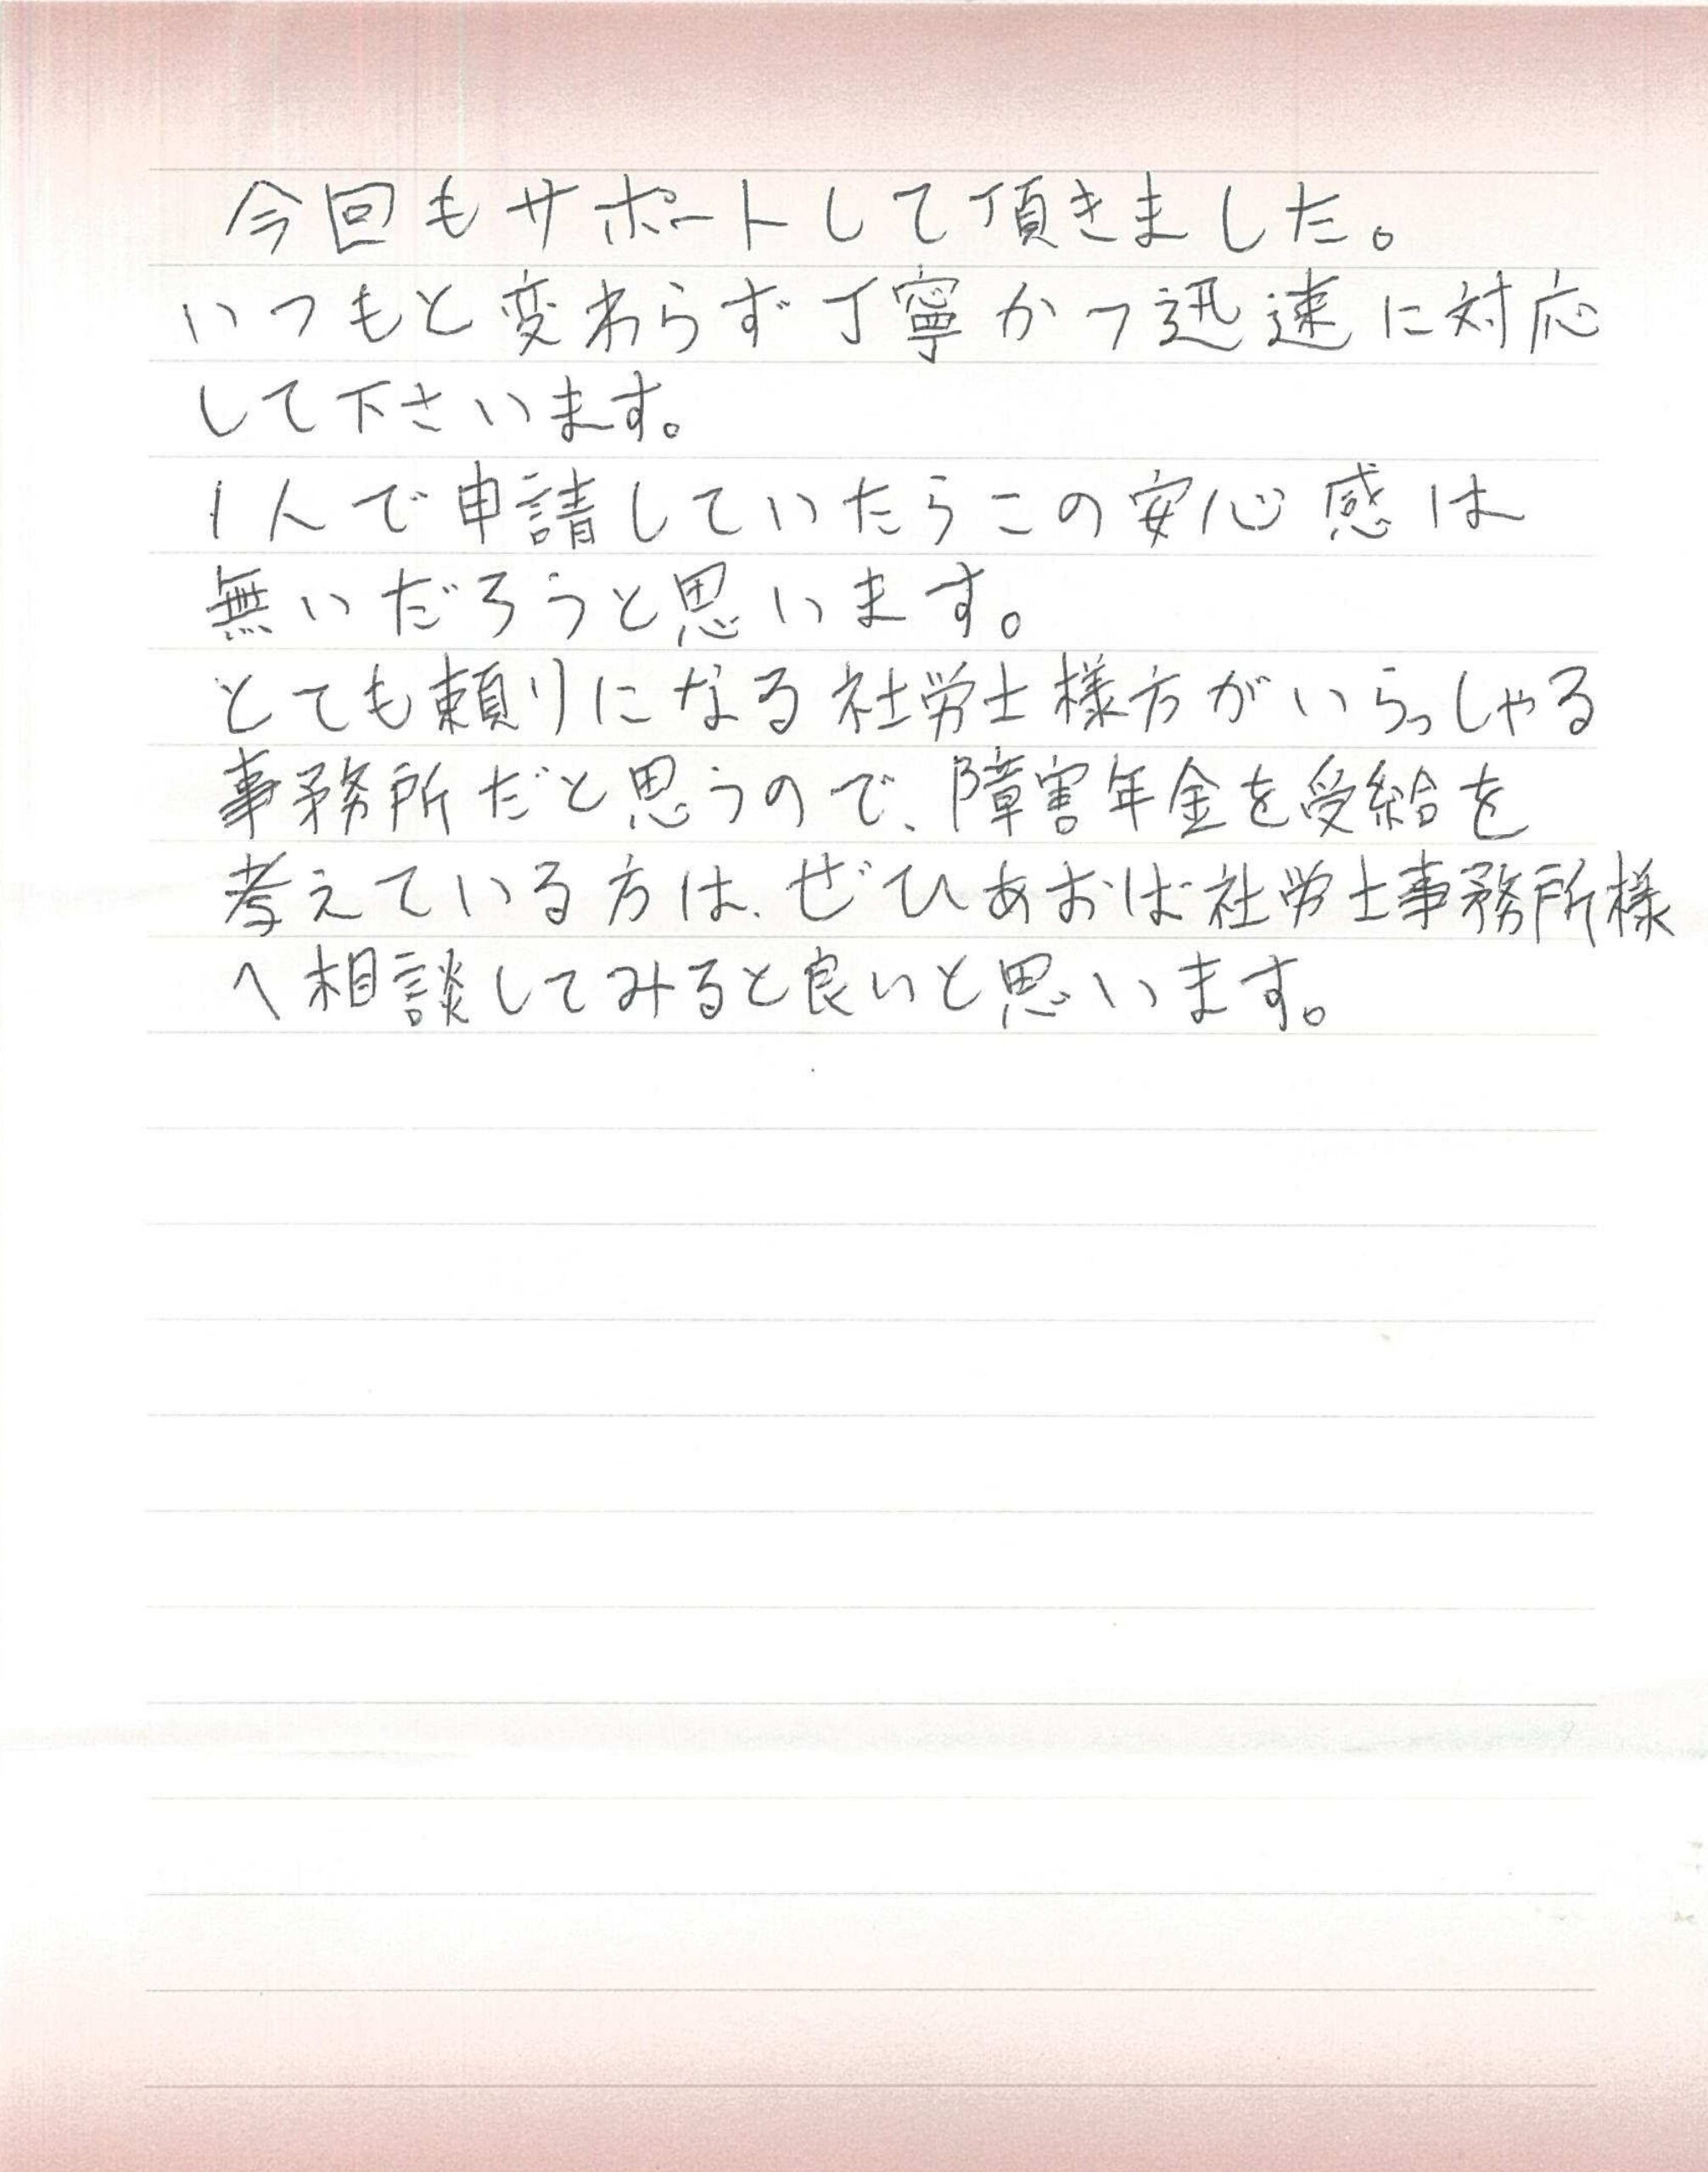 今回もサポートして頂きました。
いつもと変わらず丁寧かつ迅速に対応
して下さいます。
1人で申請していたらこの安心感は
無いだろうと思います。
とても頼りになる社労士様方がいらっしゃる
事務所だと思うので、障害年金を受給を
考えている方は、ぜひあおば社労士事務所様
へ相談してみると良いと思います。